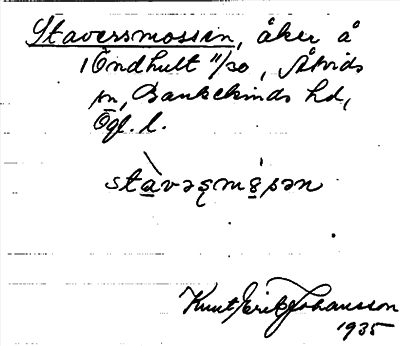 Staversmossen, åker å
Öndhult 11/20, Åtvids
sn, Bankekinds hd,
Ögl. l.
stàvəs̨mo̤̍sən
Knut Erik Johansson
1935